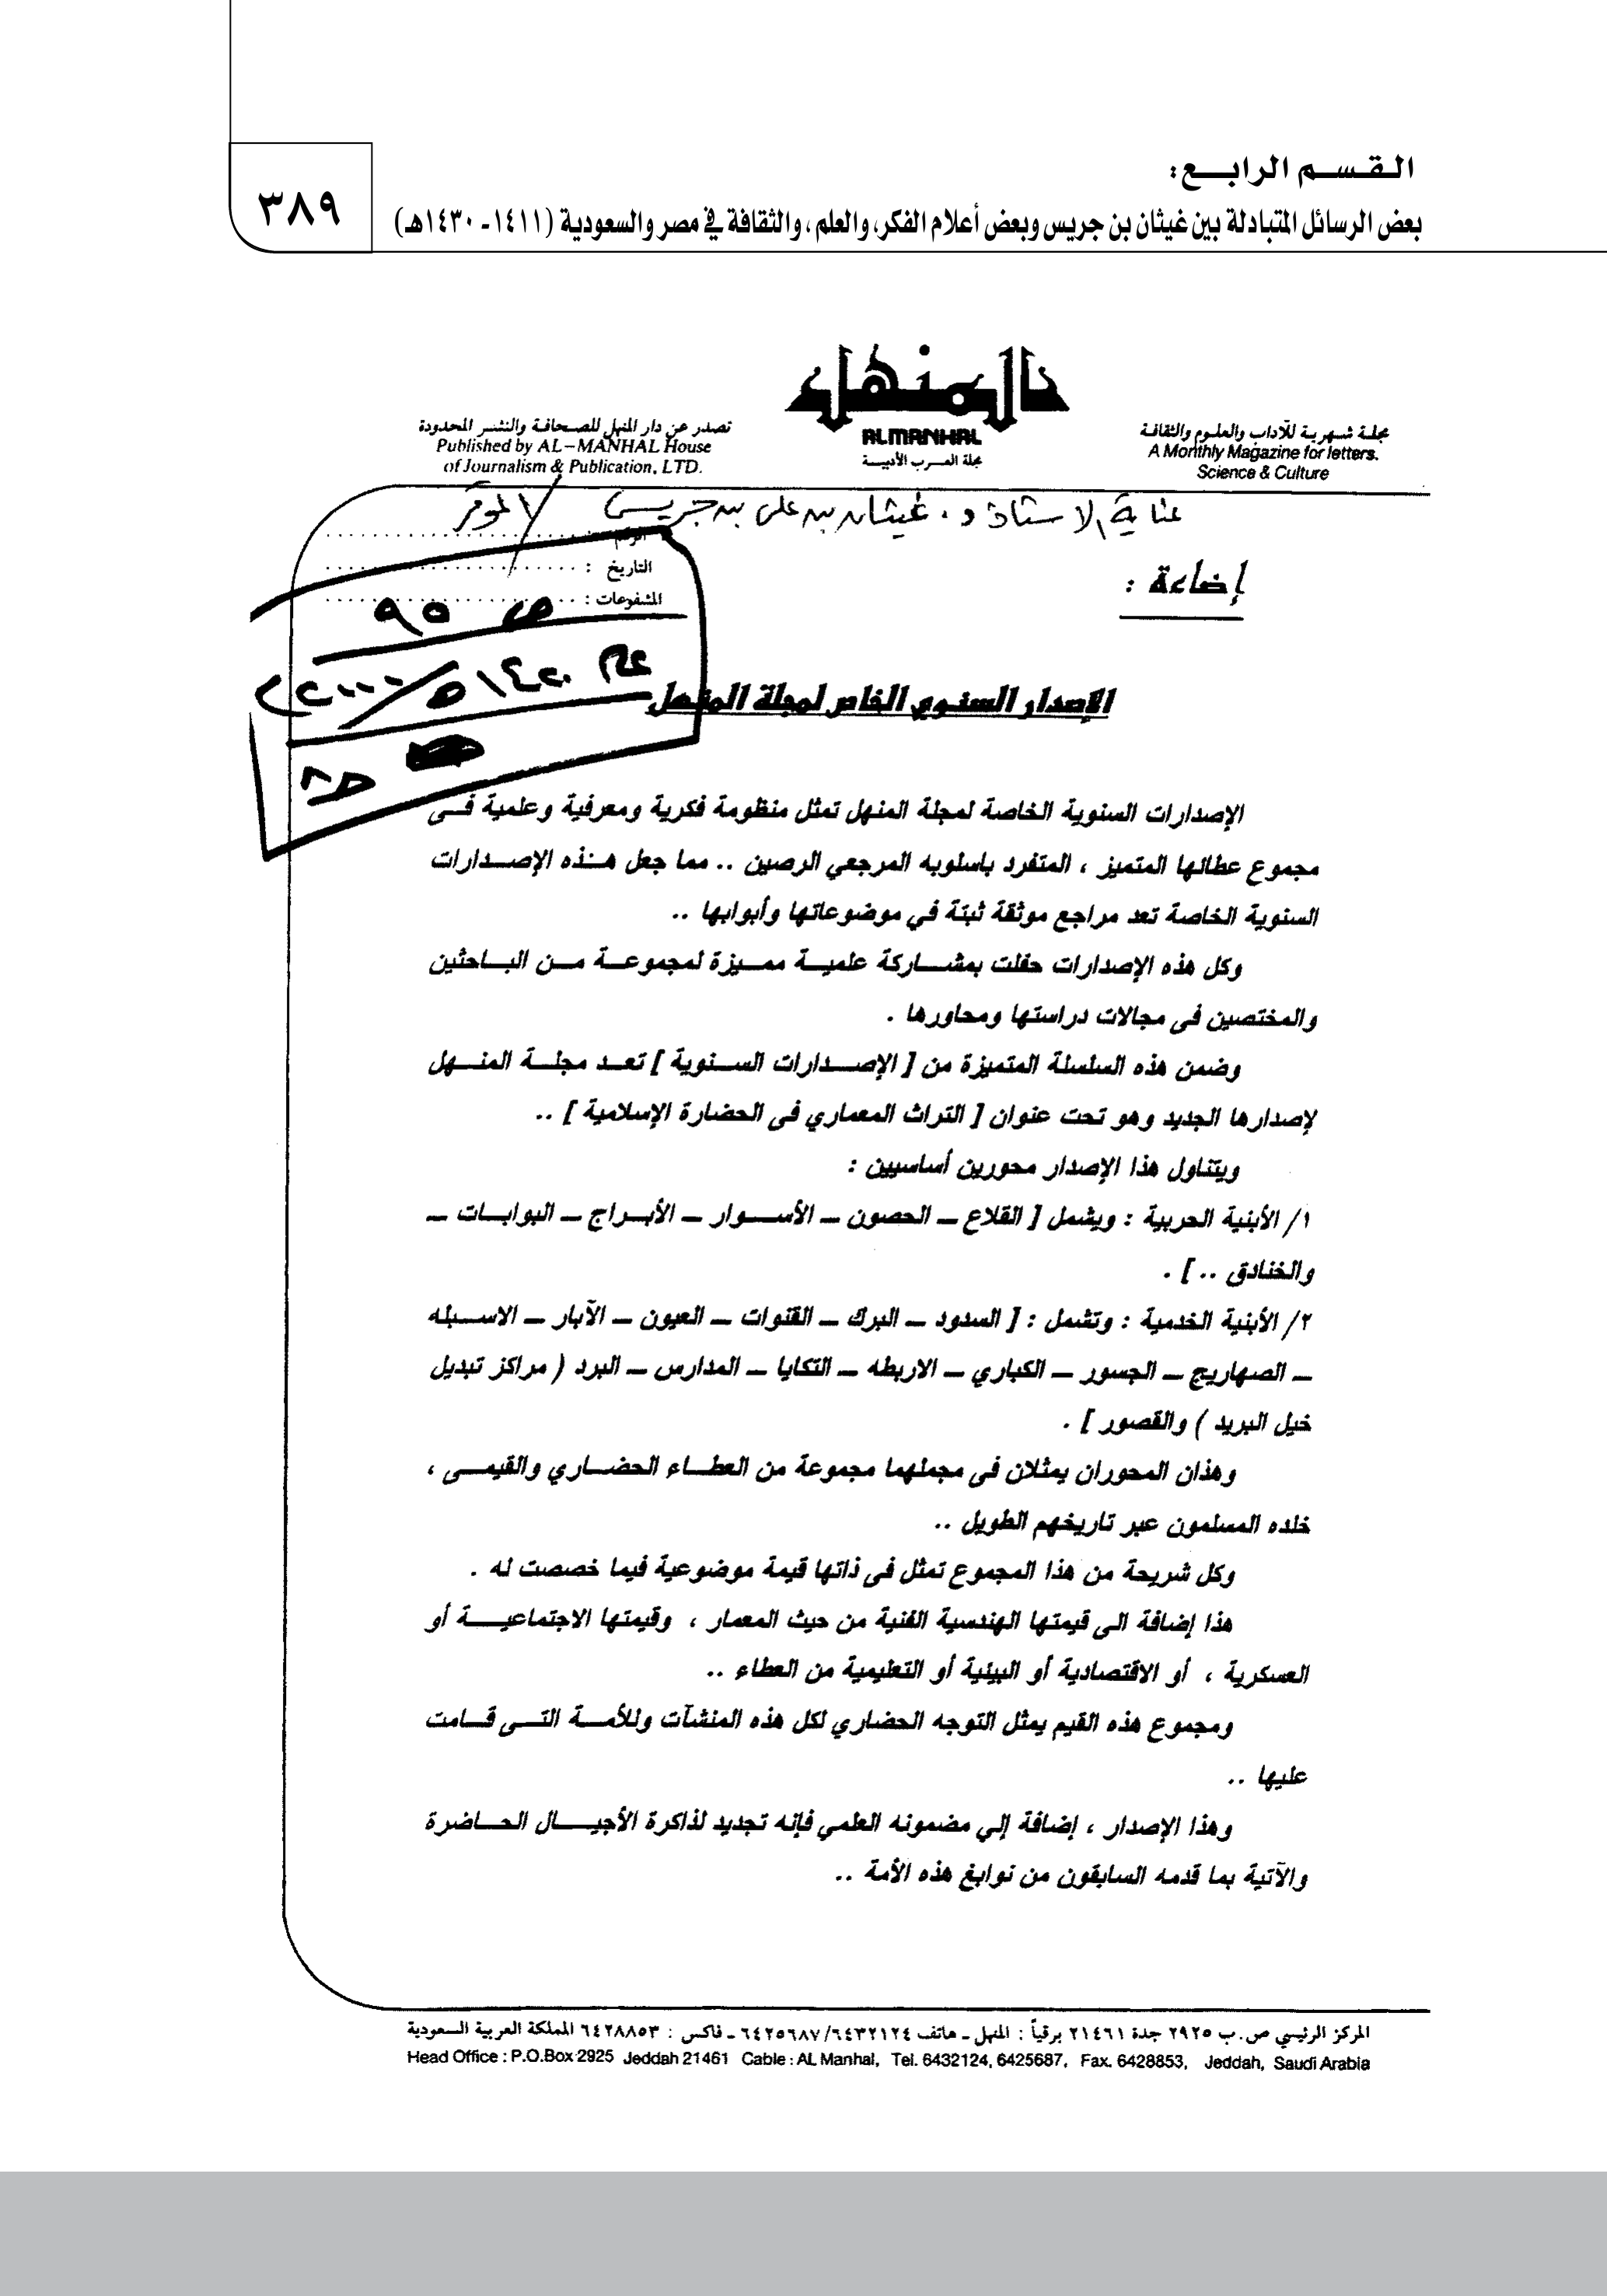 القسم الرابع:
بعض الرسائل المتبادلة بين غيثان بن جريس وبعض أعلام الفكر، والعلم، والثقافة في مصر والسعودية (١٤١١- ١٤٣٠هـ)
٣٨٩
المنهل
ALMANHAL
مجلة العرب الأدبية
مجلة شهرية للآداب والعلوم والثقافة
A Monthly Magazine for letters.
Science & Culture
تصدر عن دار المنهل للصحافة والنشر المحدودة
Published by AL-MANHAL House
of Journalism & Publication, LTD.
عناية الاستاذ د. غيثان بن علي بن جريس / الموقر
الرقم :
التاريخ :
المشفوعات :
ص ٩٥
إضاءة :
الإصدار السنوي الخاص لمجلة المنهل
الإصدارات السنوية الخاصة لمجلة المنهل تمثل منظومة فكرية ومعرفية وعلمية فى
مجموع عطائها المتميز ، المتفرد باسلوبه المرجعي الرصين .. مما جعل هذه الإصدارات
السنوية الخاصة تعد مراجع موثقة ثبتة في موضوعاتها وأبوابها ..
وكل هذه الإصدارات حفلت بمشاركة علمية مميزة لمجموعة من الباحثين
والمختصين فى مجالات دراستها ومحاورها .
وضمن هذه السلسلة المتميزة من [ الإصدارات السنوية ] تعد مجلة المنهل
لإصدارها الجديد وهو تحت عنوان [ التراث المعماري فى الحضارة الإسلامية ] ..
ويتناول هذا الإصدار محورين أساسيين :
١/ الأبنية الحربية : ويشمل [ القلاع – الحصون – الأسوار – الأبراج – البوابات –
والخنادق .. ] .
٢/ الأبنية الخدمية : وتشمل : [ السدود – البرك – القنوات – العيون – الآبار – الاسبله
– الصهاريج – الجسور – الكباري – الاربطه – التكايا – المدارس – البرد ( مراكز تبديل
خيل البريد ) والقصور ] .
وهذان المحوران يمثلان فى مجملهما مجموعة من العطاء الحضاري والقيمى ،
خلده المسلمون عبر تاريخهم الطويل ..
وكل شريحة من هذا المجموع تمثل فى ذاتها قيمة موضوعية فيما خصصت له .
هذا إضافة الى قيمتها الهندسية الفنية من حيث المعمار ، وقيمتها الاجتماعية أو
العسكرية ، أو الاقتصادية أو البيئية أو التعليمية من العطاء ..
ومجموع هذه القيم يمثل التوجه الحضاري لكل هذه المنشآت وللأمة التى قامت
عليها ..
وهذا الإصدار ، إضافة إلي مضمونه العلمي فإنه تجديد لذاكرة الأجيال الحاضرة
والآتية بما قدمه السابقون من نوابغ هذه الأمة ..
المركز الرئيسي ص.ب ٢٩٢٥ جدة ٢١٤٦١ برقياً : المنهل - هاتف ٦٤٣٢١٢٤/٦٤٢٥٦٨٧ - فاكس : ٦٤٢٨٨٥٣ المملكة العربية السعودية
Head Office : P.O.Box 2925 Jeddah 21461 Cable : AL Manhal, Tel. 6432124, 6425687, Fax. 6428853, Jeddah, Saudi Arabia